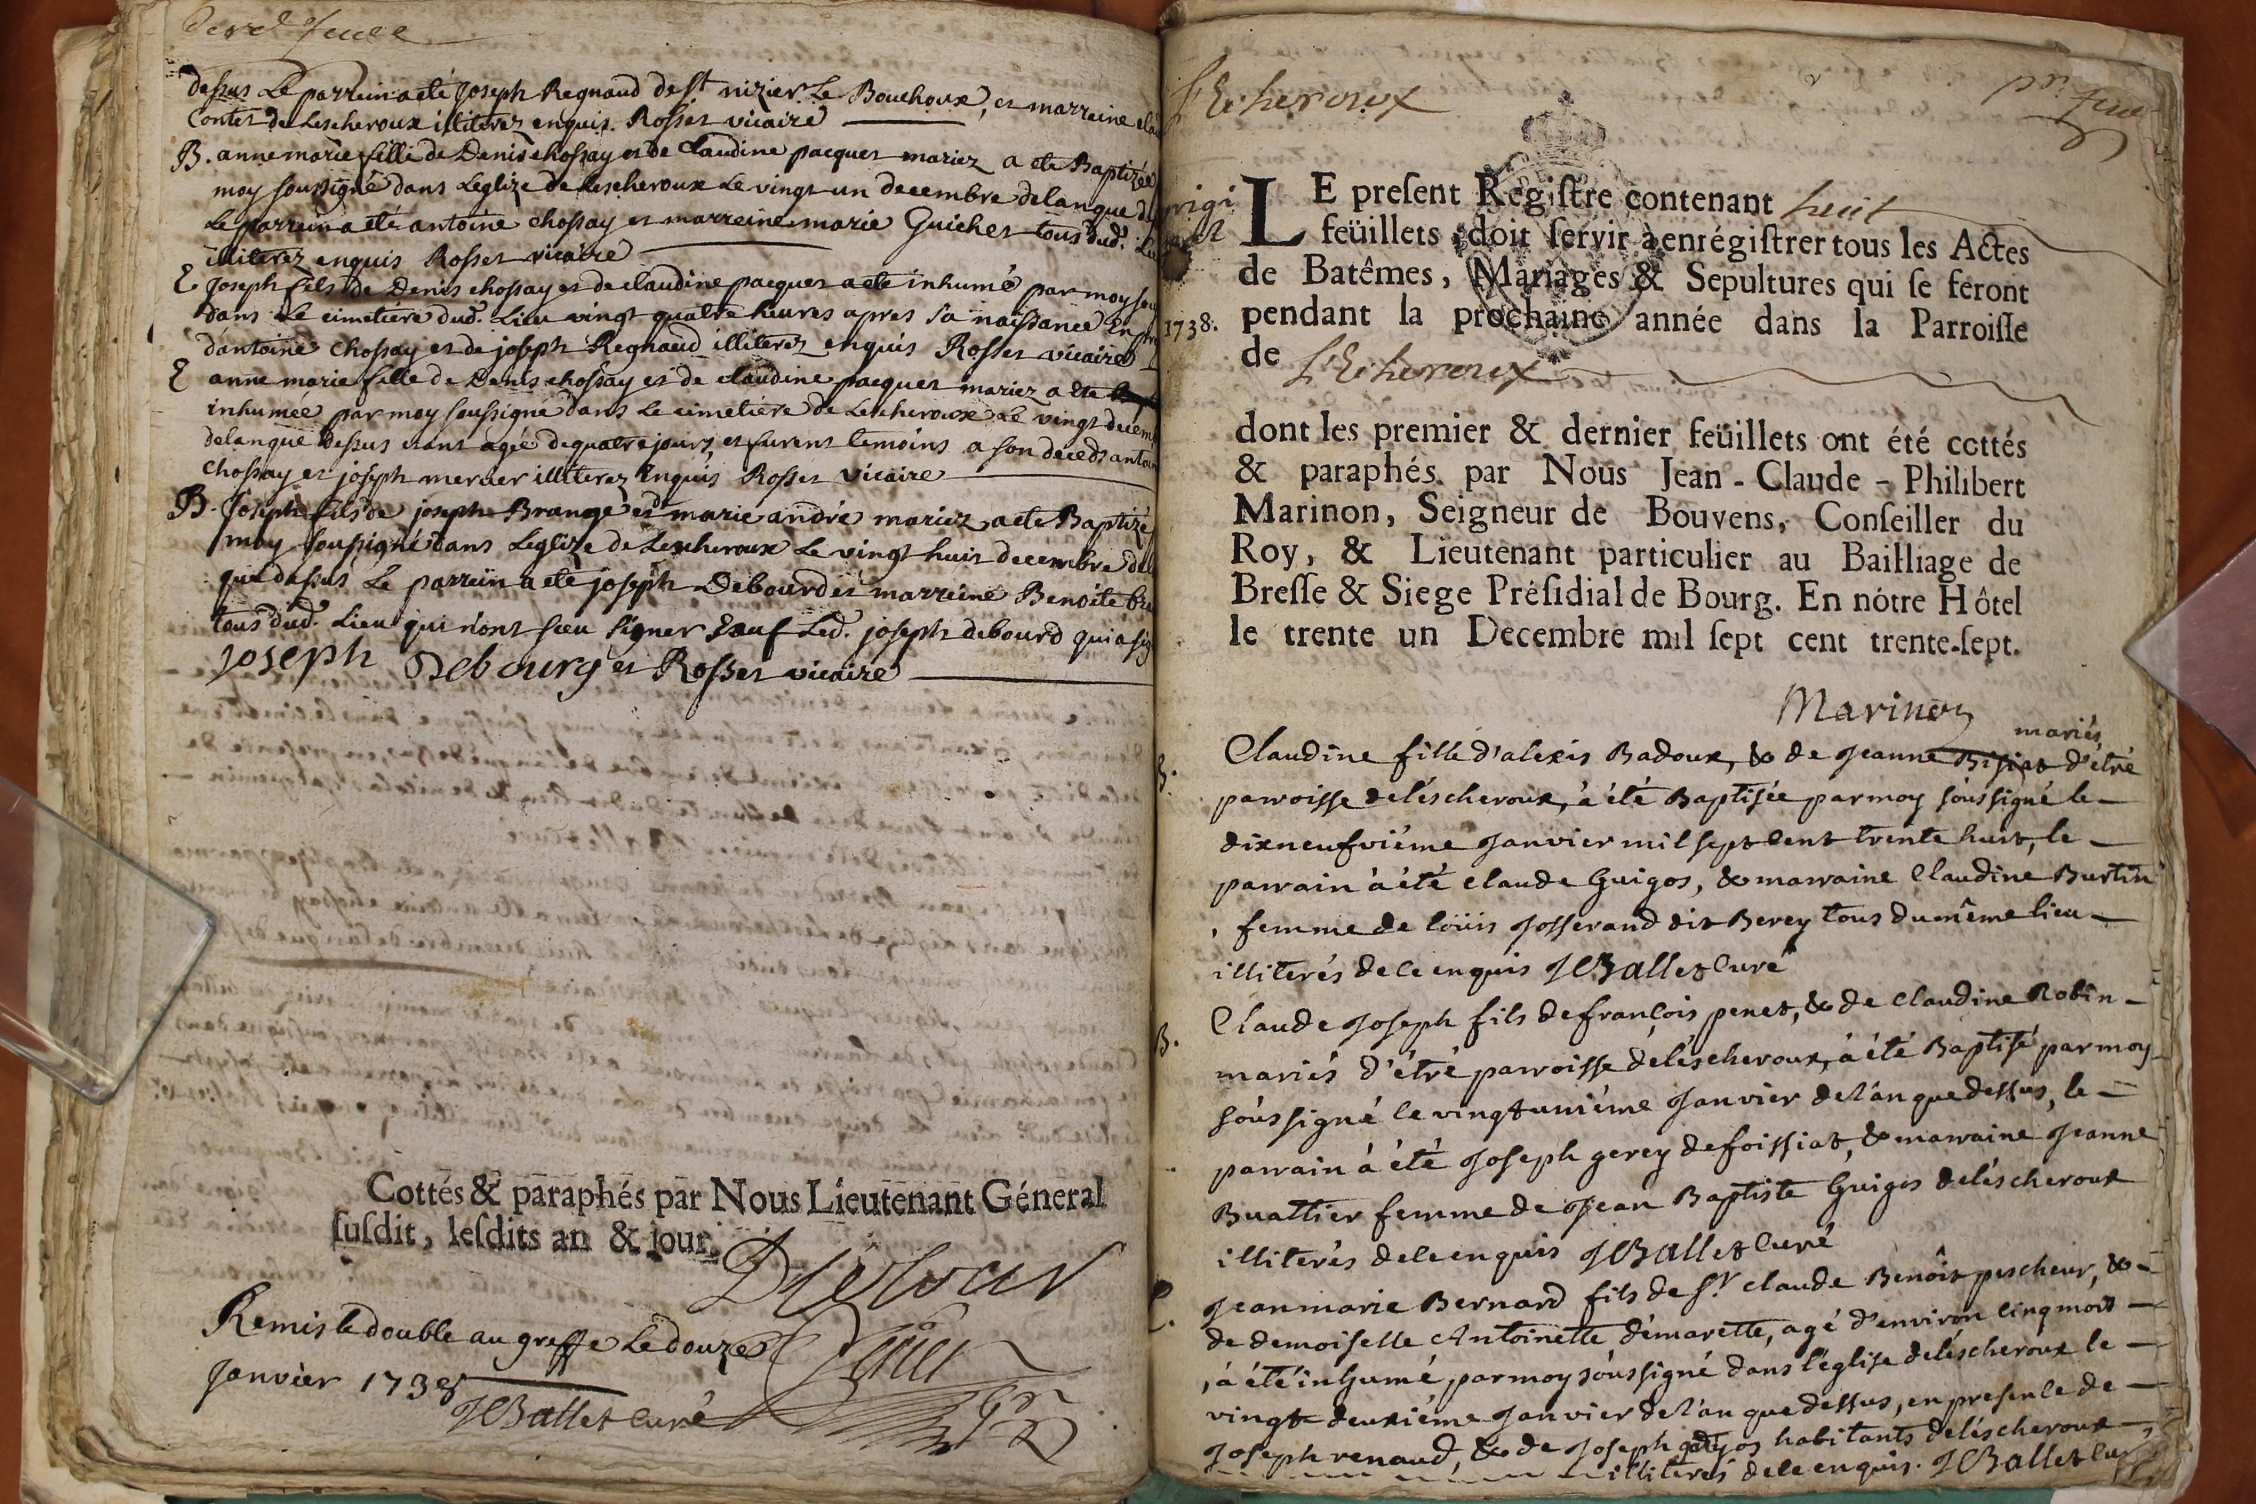 dessus Le parrein a eté Joseph Regnaud de St nizier Le Bouchoux, et marreine
Contet de Lescheroux illiterez enquis. Rosset vicaire
B. anne marie fille de Denis chossay et de Claudine pacquet mariez a ete Baptizée
moy soussigné dans Leglize de Lescheroux Le vingt un decembre de lan que
Le parrein a eté antoine Chossay et marreine marie Guichet tous dud.
illiterez enquis Rosset vicaire
E Joseph fils de Denis chossay et de claudine pacquet a ete inhumé par moy
dans Le cimetiere dud. Lieu vingt quatre heures apres sa naissance
dantoine Chossay et de joseph Regnaud illiterez enquis Rosset vicaire
E anne marie fille de Denis chossay et de claudine pacquet mariez a ete
inhumée par moy soussigné dans Le cimetiere de Lescheroux Le vingt
delanque dessus etant agée de quatre jours, et furent temoins a son deceds
Chossay et joseph mercier illiterez Enquis Rosset Vicaire
B. Joseph fils de joseph Brange et marie andré mariez a ete Baptizé
moy soussigné dans Leglize de Lescheroux Le vingt huit decembre
que dessus Le parrein a eté joseph Debourd et marreine Benoite
tous dud. Lieu qui n'ont sceu signer Sauf Led. joseph debourd qui a
joseph Debourg et Rosset vicaire
Cottés & paraphés par Nous Lieutenant Géneral
ſuſdit, leſdits an & jour.
Remis le double au greffe Le douze
Janvier 1738
JBallet curé
LEcheroux
LE preſent Regiſtre contenant huit
feüillets doit ſervir à enrégiſtrer tous les Actes
de Batêmes, Mariages & Sepultures qui ſe feront
1738. pendant la prochaine année dans la Parroiſſe
de LEcheroux
dont les premier & dernier feüillets ont été cottés
& paraphés par Nous Jean-Claude-Philibert
Marinon, Seigneur de Bouvens, Conſeiller du
Roy, & Lieutenant particulier au Bailliage de
Breſſe & Siege Préſidial de Bourg. En nôtre Hôtel
le trente un Decembre mil ſept cent trente-ſept.
Marinon
mariés
B. Claudine fille d'alexis Badoux, & de Jeanne d'étré
parroisse de léscheroux, à été Baptisée par moy soussigné le
dixneufviéme Janvier mil sept cent trente huit, le
parrain à été claude Guigos, & marraine Claudine Burtin
femme de loüis Josserand dit Berey tous du même lieu
illiterés de ce enquis JBallet curé
B. Claude Joseph fils de françois penet, & de Claudine Robin
mariés d'étré parroisse de léscheroux, à été Baptisé par moy
soussigné le vingt uniéme Janvier de l'an que dessus, le
parrain à été Joseph gerey de foissiat, & marraine Jeanne
Buattier femme de Jean Baptiste Guigos de léscheroux
illiterés de ce enquis JBallet curé
E. Jean marie Bernard fils de Sr. claude Benoît pescheur, &
de demoiselle Antoinette démarette, agé d'environ cinq mois
, à été inhumé par moy soussigné dans l'église de léscheroux le
vingt deuxiéme Janvier de l'an que dessus, en presence de
Joseph renaud, & de Joseph habitants de léscheroux
illiterés de ce enquis. JBallet curé